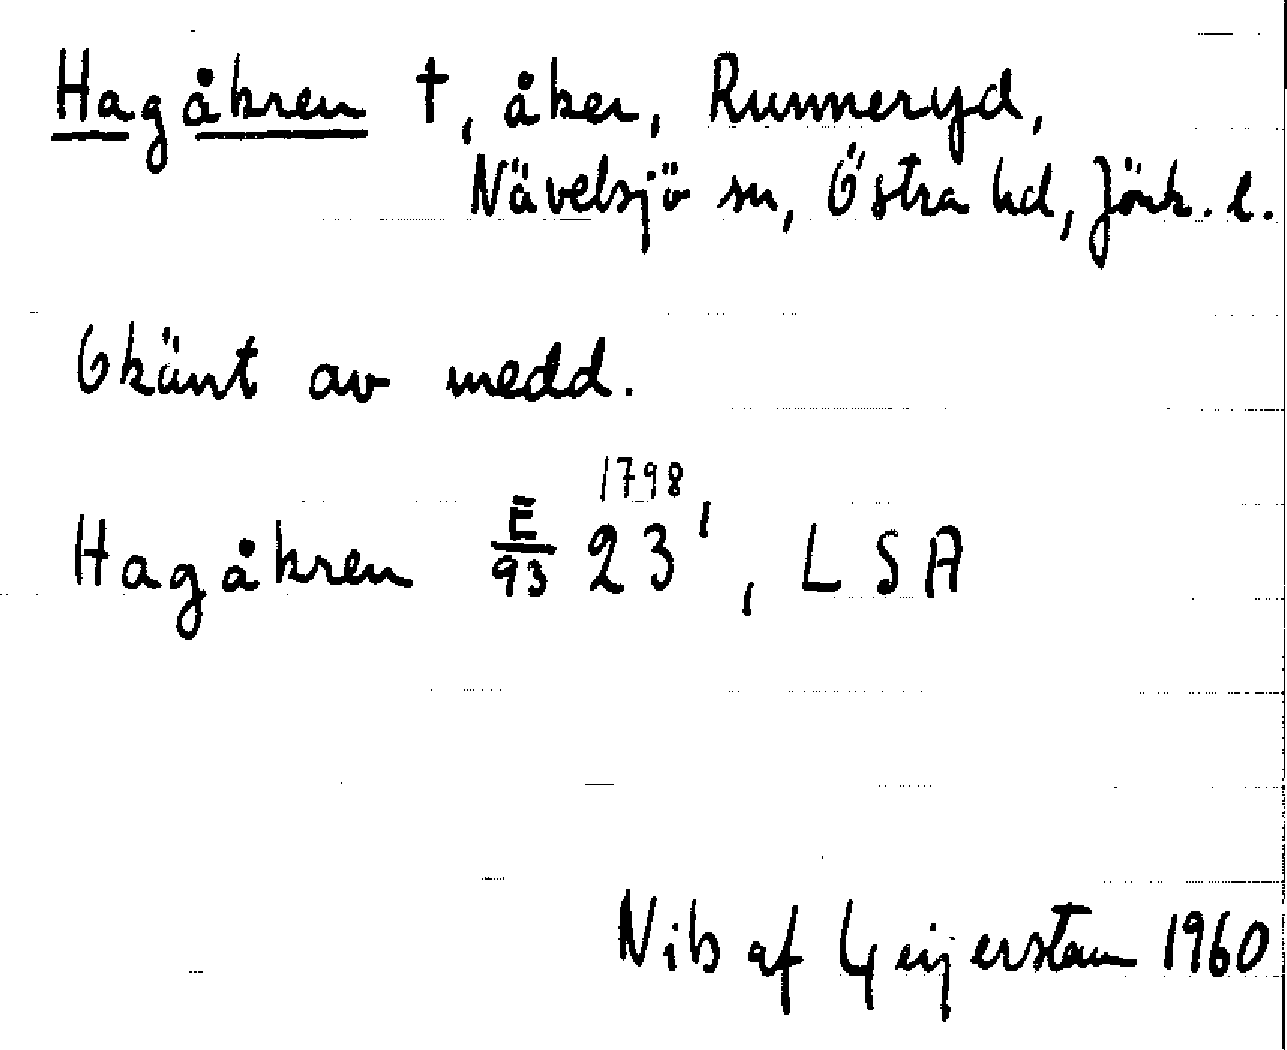 Hagåkren †, åker, Runneryd,
Nävelsjö sn, Östra hd, Jönk. l.
Okänt av medd.
1798
Hagåkren E/93 23', LSA
Nils af Geijerstam 1960